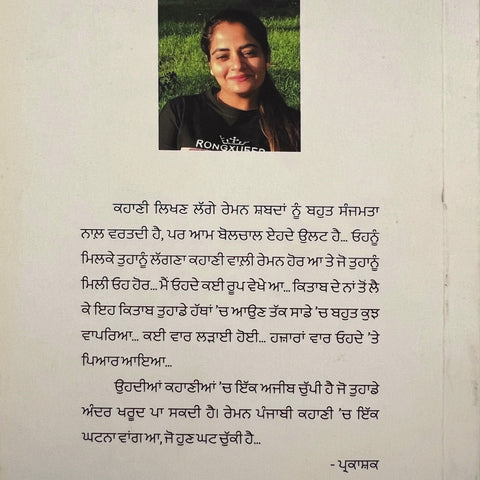 RONGXUEER
ਕਹਾਣੀ ਲਿਖਣ ਲੱਗੇ ਰੇਮਨ ਸ਼ਬਦਾਂ ਨੂੰ ਬਹੁਤ ਸੰਜਮਤਾ
ਨਾਲ਼ ਵਰਤਦੀ ਹੈ, ਪਰ ਆਮ ਬੋਲਚਾਲ ਏਹਦੇ ਉਲਟ ਹੈ... ਓਹਨੂੰ
ਮਿਲਕੇ ਤੁਹਾਨੂੰ ਲੱਗਣਾ ਕਹਾਣੀ ਵਾਲ਼ੀ ਰੇਮਨ ਹੋਰ ਆ ਤੇ ਜੋ ਤੁਹਾਨੂੰ
ਮਿਲੀ ਓਹ ਹੋਰ... ਮੈਂ ਓਹਦੇ ਕਈ ਰੂਪ ਵੇਖੇ ਆ... ਕਿਤਾਬ ਦੇ ਨਾਂ ਤੋਂ ਲੈ
ਕੇ ਇਹ ਕਿਤਾਬ ਤੁਹਾਡੇ ਹੱਥਾਂ 'ਚ ਆਉਣ ਤੱਕ ਸਾਡੇ 'ਚ ਬਹੁਤ ਕੁਝ
ਵਾਪਰਿਆ... ਕਈ ਵਾਰ ਲੜਾਈ ਹੋਈ... ਹਜ਼ਾਰਾਂ ਵਾਰ ਓਹਦੇ 'ਤੇ
ਪਿਆਰ ਆਇਆ...
ਉਹਦੀਆਂ ਕਹਾਣੀਆਂ 'ਚ ਇੱਕ ਅਜੀਬ ਚੁੱਪੀ ਹੈ ਜੋ ਤੁਹਾਡੇ
ਅੰਦਰ ਖਰੂਦ ਪਾ ਸਕਦੀ ਹੈ। ਰੇਮਨ ਪੰਜਾਬੀ ਕਹਾਣੀ 'ਚ ਇੱਕ
ਘਟਨਾ ਵਾਂਗ ਆ, ਜੋ ਹੁਣ ਘਟ ਚੁੱਕੀ ਹੈ...
- ਪ੍ਰਕਾਸ਼ਕ